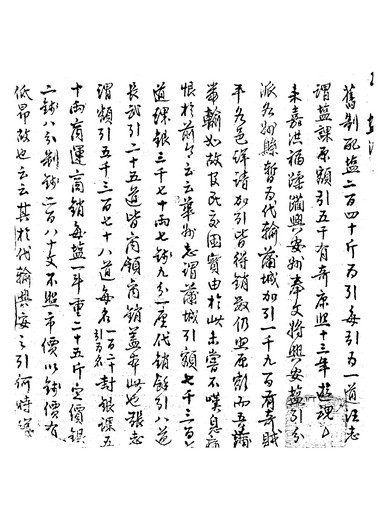 舊制配鹽二百四十斤為引每引為一道汪志
謂鹽課原額引五千有奇原照十三年
未嘉洪福蹂躪興安州奉文將興安鹽引分
派各州縣暫為代輸蒲城加引一千九百有奇賦
平各邑詳請加引皆得銷數仍照原額而五蒲
輸如故民交困實由於此未嘗不嘆息痛
恨於前令也云華州志謂蒲城引額七千三百
道課銀三千七十兩七錢九分一厘代銷餘引八道
長武引二十五道皆商領商銷蓋本此也張志
謂額引五千三百七十八道每名一百二十封銀課五
十兩商運商銷每鹽一斤重二十五斤定價銀
二錢八分制錢二百八十文不照市價以錢價有
低昂故也云云其於代輸興安之引何時